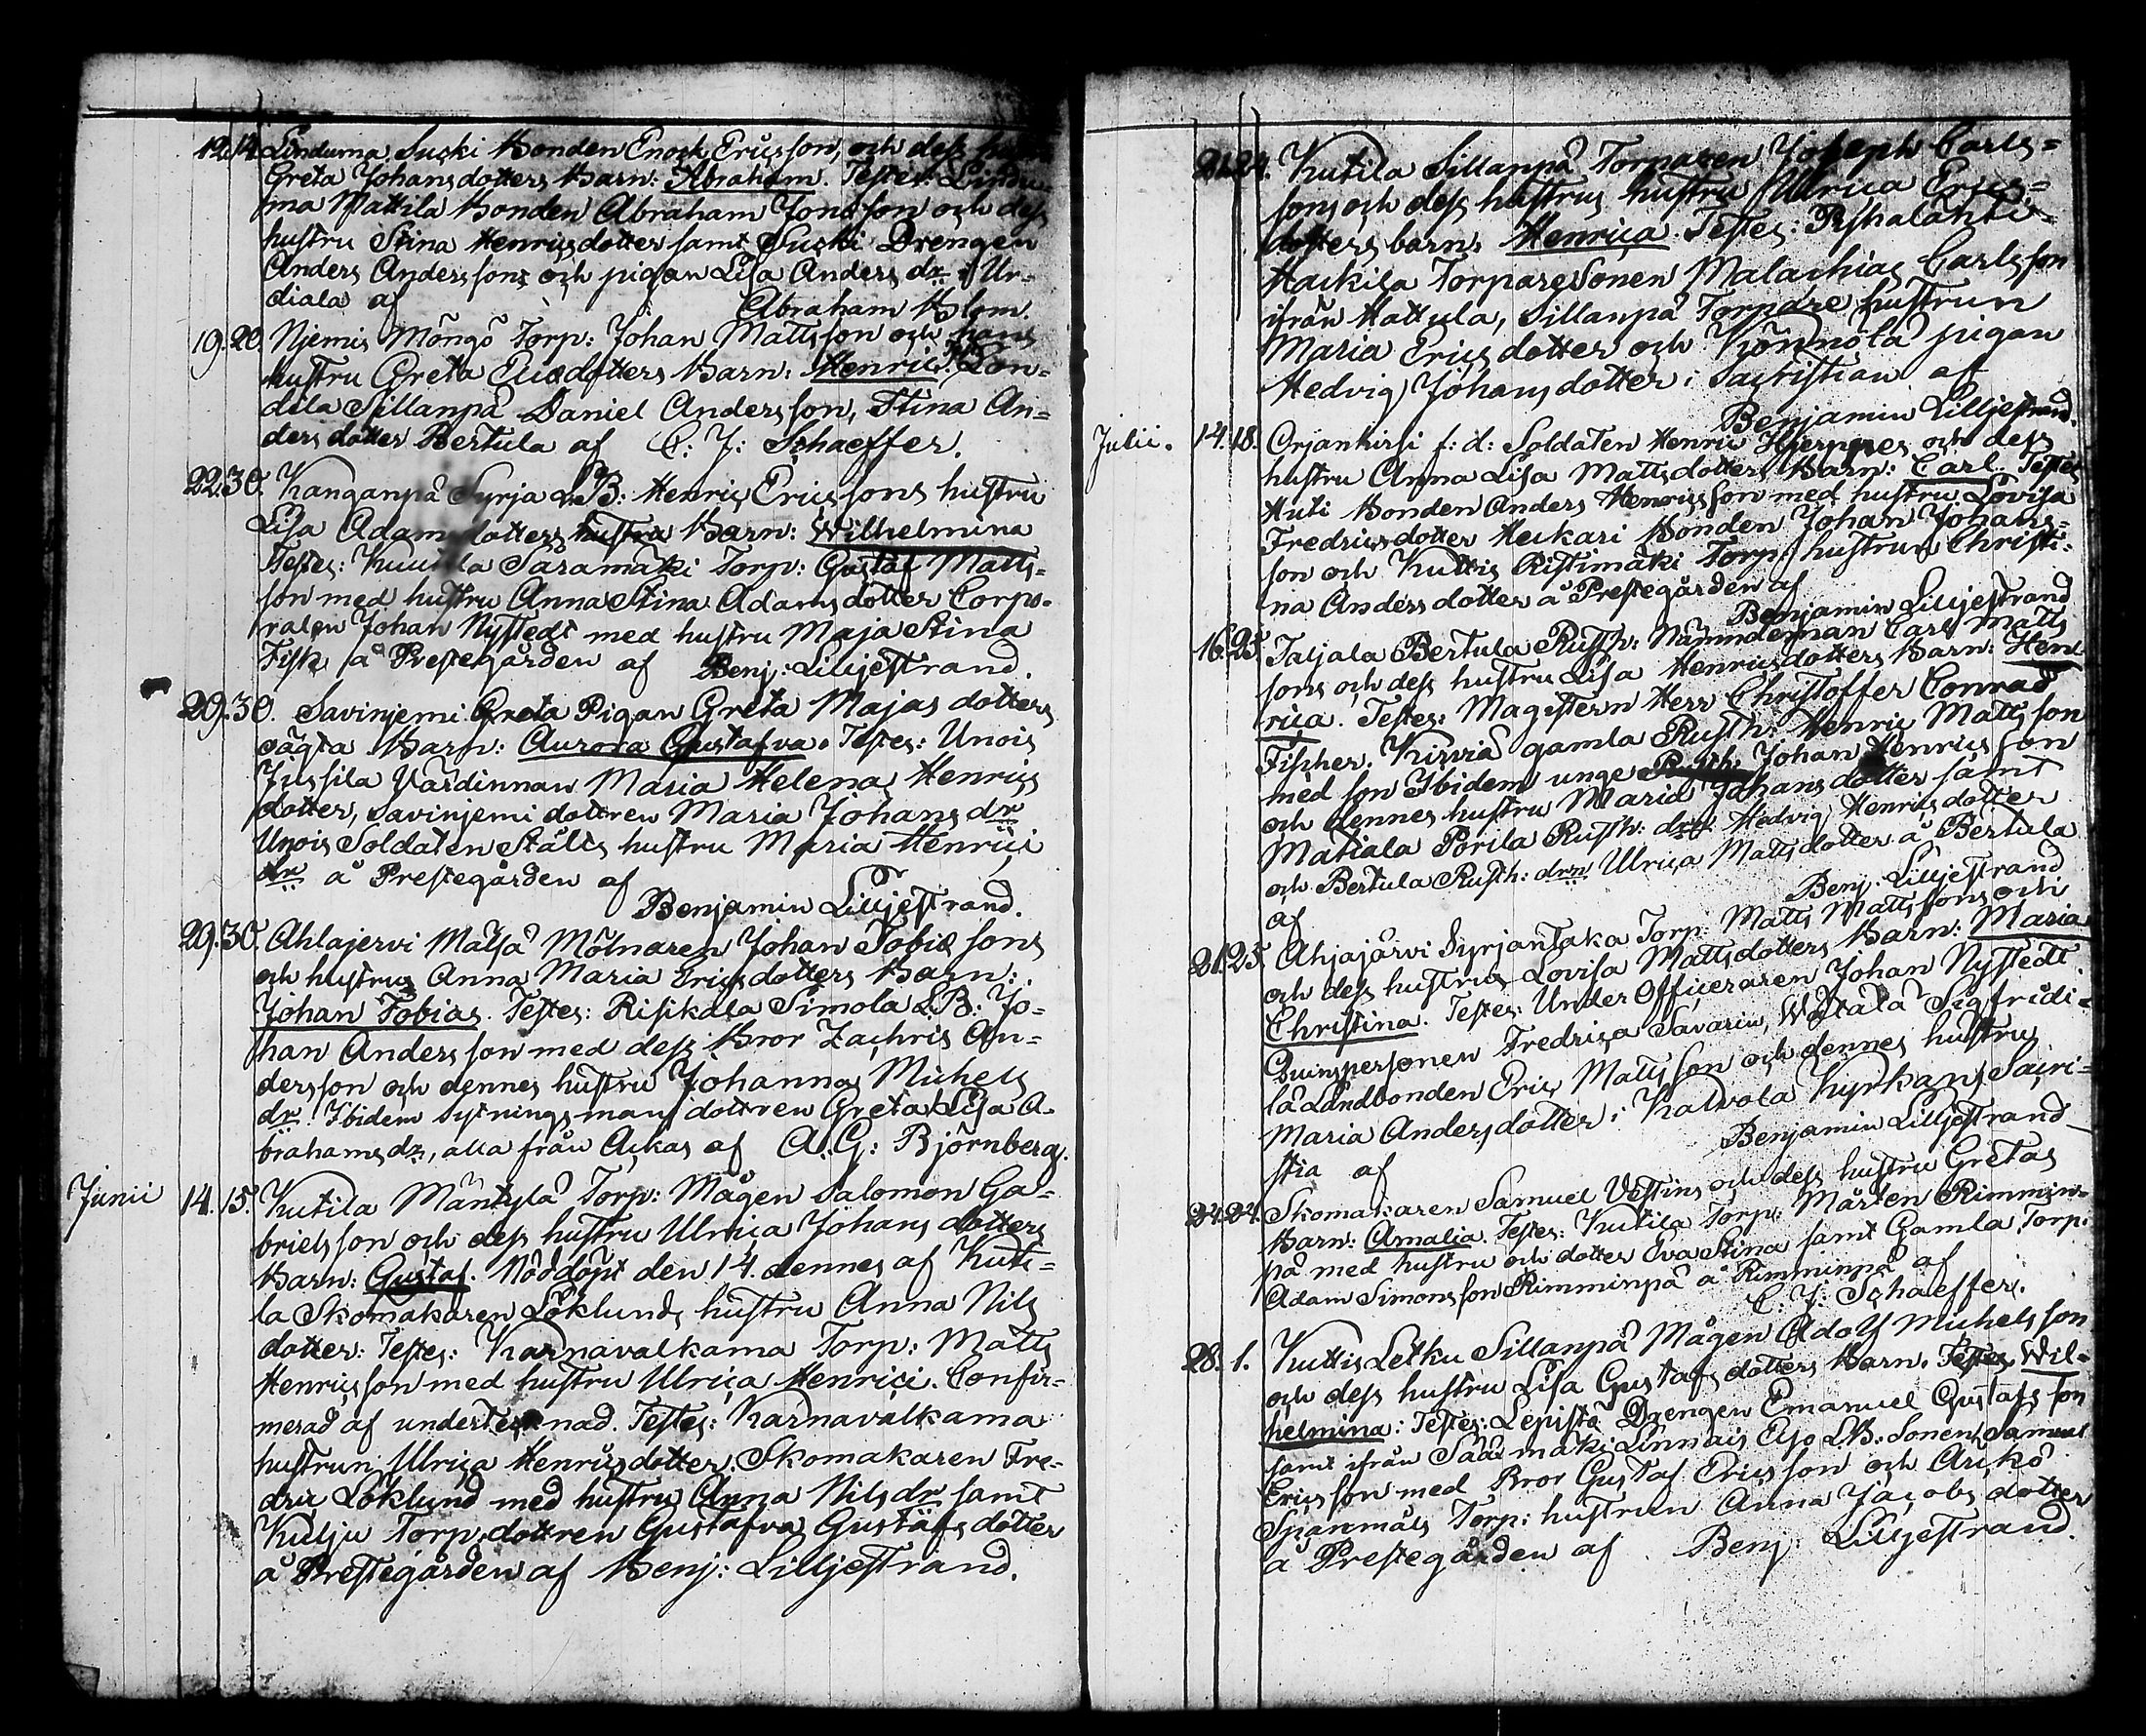 12. 14. Linduma Sucki Bonden Enock Ericsson, och dess
Greta Johansdotters Barn: Abraham. Testes: Lindu-
ma Mattila Bonden Abraham Jonasson och dess
hustru Stina Henricsdotter samt Sucki Drengen
Anders Anderssons och pigan Lisa Anders dr i Ur-
diala af Abraham Blom.
19. 20. Njemis Möngö Torp: Johan Mattsson och hans
hustru Greta Ericsdotters Barn: Henric. Kon-
dila Sillanpä Daniel Andersson, Stina An-
ders dotter Bertula af C: J: Schaeffer.
22. 30. Kanganpä Syrja LB: Henric Ericssons hustru
Lisa Adamsdotters hustru Barn: Wilhelmina
Testes: Saramäki Torp: Gustaf Matts-
son med hustru Anna Stina Adamsdotter Corpo-
ralen Johan Nystedt med hustru Maja Stina
Fisk å Prestegården af Benj: Lilljestrand.
29. 30. Savinjemi Greta Pigan Greta Majas dotters
oägta Barn: Aurora Gustafva. Testes: Unois
Jussila Värdinnan Maria Helena Henrics
dotter, Savinjemi dottren Maria Johans dr
Unois Soldaten Stålts hustru Maria Henrici
dr å Prestegården af
Benjamin Lilljestrand.
29. 30. Ahlajervi Mälsä Mölnaren Johan Tobiæ sons
och hustrus Anna Maria Ericsdotters Barn:
Johan Tobias. Testes: Risikala Simola LB: Jo-
han Andersson med dess Bror Zachris An-
dersson och dennes hustru Johanna Michels
dr. Ibidem Sytningsmans dottren Greta Lisa A-
brahams dr, alla från Ackas af A. G: Björnberg.
Junii 14. 15. Kutila Mäntylä Torp: Mågen Salomon Ga-
brielsson och dess hustru Ulrica Johans dotters
Barn: Gustaf. Nöddöpt den 14. dennes af Kuti-
la Skomakaren Löklunds hustru Anna Nils
dotter: Testes: Karnavalkama Torp: Matts
Henricsson med hustru Ulrica Henrici. Confir-
merad af undertecknad. Testes: Karnavalkama
hustrun Ulrica Henricsdotter. Skomakaren Fre-
dric Löklund med hustru Anna Nils dr samt
Kulju Torp: dottren Gustafva Gustafs dotter
å Prestegården af Benj: Lilljestrand.
24. Kutila Sillanpä Torparen Joseph Carls-
sons och dess hustrus hustru Ulrica Erics-
dotters barn. Henrica. Testes:
Hackila Torpare Sonen Malachias Carlsson
ifrån Hattula, Sillanpä Torpare hustrun
Maria Ericsdotter och Könnölä pigan
Hedvig Johansdotter i Sacristian af
Benjamin Lilljestrand.
Julii. 14. 18. Orjankirsi f: d: Soldaten Henric Hjerppes och dess
hustru Anna Lisa Mattsdotters Barn: Carl. Testes
Huti Bonden Anders Henricsson med hustru Lovisa
Fredricsdotter Heikari Bonden Johan Johans-
son och Kuttis Ristimäki Torp: hustrun Christi-
na Andersdotter å Prestegården af
Benjamin Lilljestrand
16. 25. Taljala Bertula Rusth: Nämndeman Carl Matts
sons och dess hustru Lisa Henricsdotters Barn: Hen-
rica. Testes: Magistern Herr Christoffer Conrad
Fischer. Kirviä gamla Rusth: Henric Mattsson
med son Ibidem unge Rusth: Johan Henricsson
och dennes hustru Maria Johansdotter samt
Matiala Porila Rusth: drr Hedvig Henricsdotter
och Bertula Rusth: drn Ulrica Mattsdotter å Bertula
af Benj. Lilljestrand
21. 25. Ahjajärvi Syrjantaka Torp: Matts Mattssons och
och dess hustrus Lovisa Mattsdotters Barn: Maria
Christina. Testes: Under Officeraren Johan Nystedt.
Qvinspersonen Fredrica Savarin, Sigfridi-
lä Landbonden Eric Mattsson och dennes hustru
Maria Andersdotter i Kalvola Kyrkans Sacri-
stia af Benjamin Lilljestrand
24. 24. Skomakaren Samuel Vestins och dess hustru Gretas
Barn: Amalia. Testes: Kutila Torp: Mårten Rimmin-
pä med hustru och dotter Eva Stina samt Gamla Torp:
Adam Simonsson Rimminpä å Rimminpä af
C: J: Schaeffer.
28. 1. Kuttis Letku Sillanpä Mågen Adolf Michelsson
och dess hustru Lisa Gustafsdotters Barn. Testes. Wil-
helmina: Testes: Lepistö Drengen Emanuel Gustafsson
samt ifrån Sääxmäki Linnais Eijo LB: Sonen Samuel
Ericsson med Bror Gustaf Ericsson och
Torp: hustrun Anna Jacobs dotter
å Prestegården af Benj: Lilljestrand.